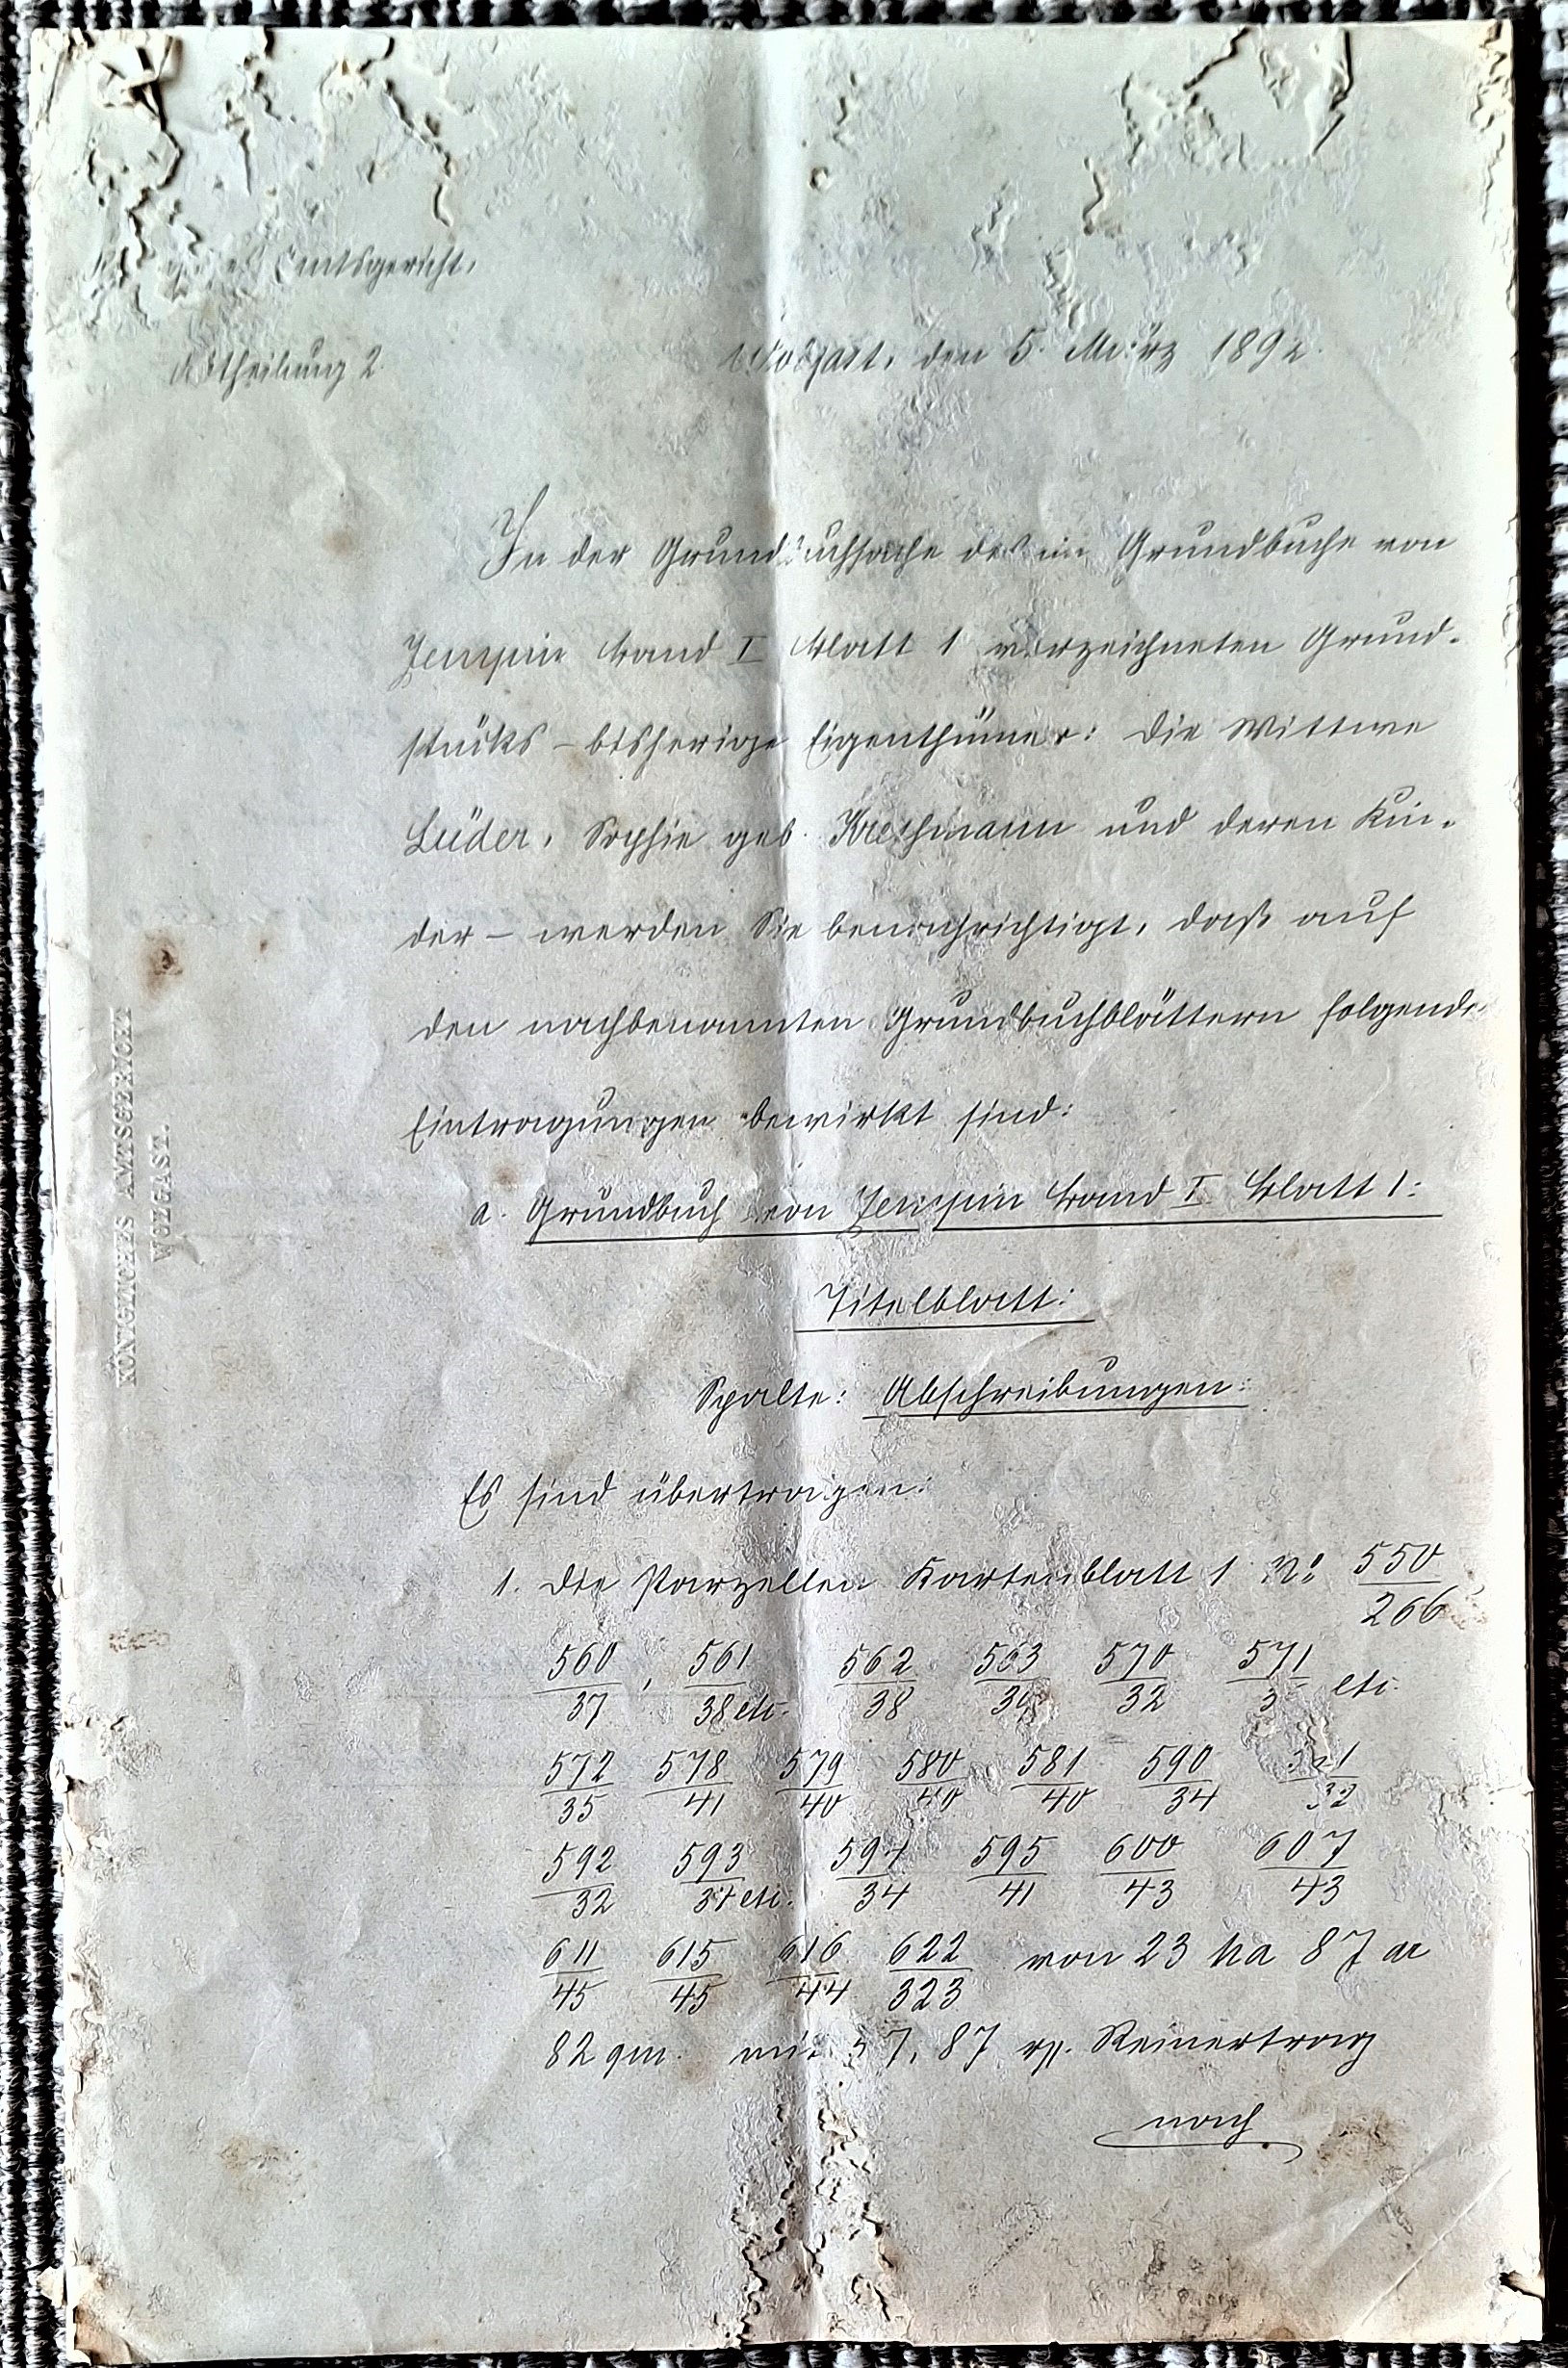 Amtsgericht.
Abtheilung 2.
Wolgast, den 5. März 1892.
In der Grundbuchsache des im Grundbuche von
Zempin Band I Blatt 1 verzeichneten Grund-
stücks – bisherige Eigenthümer: Die Wittwe
Lüder, Sophie geb. und deren Kin-
der – werden Sie benachrichtigt, daß auf
den nachbenannten Grundbuchblättern folgende
Eintragungen bewirkt sind:
KÖNIGLICHES AMTSGERICHT
WOLGAST.
a. Grundbuch von Zempin Band I Blatt 1:
Titelblatt:
Spalte: Abschreibungen:
Es sind übertragen:
1. Die Parzellen Kartenblatt 1 No 550/266
560/37, 561/38 etc. 562/38 563/39 570/32 571/ etc.
572/35 578/41 579/40 580/40 581/40 590/34
592/32 593/ etc. 594/34 595/41 600/43 607/43
611/45 615/45 616/44 622/323 von 23 ha 87 ar
82 qm. mit Reinertrag
nach